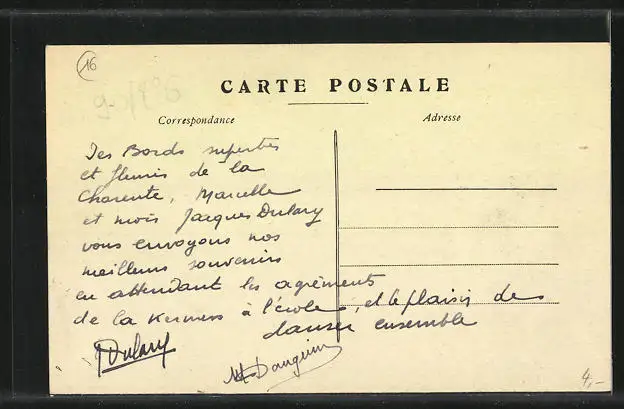 16
CARTE POSTALE
Correspondance
Adresse
Des Bords superbes
et fleuris de la
Charente, Marcelle
et mois Jacques Dulary
vous envoyons nos
meilleurs souvenirs
en attendant les agréments
de la Kermess à l'école, et le plaisir de
danser ensemble
Dulary
4,-